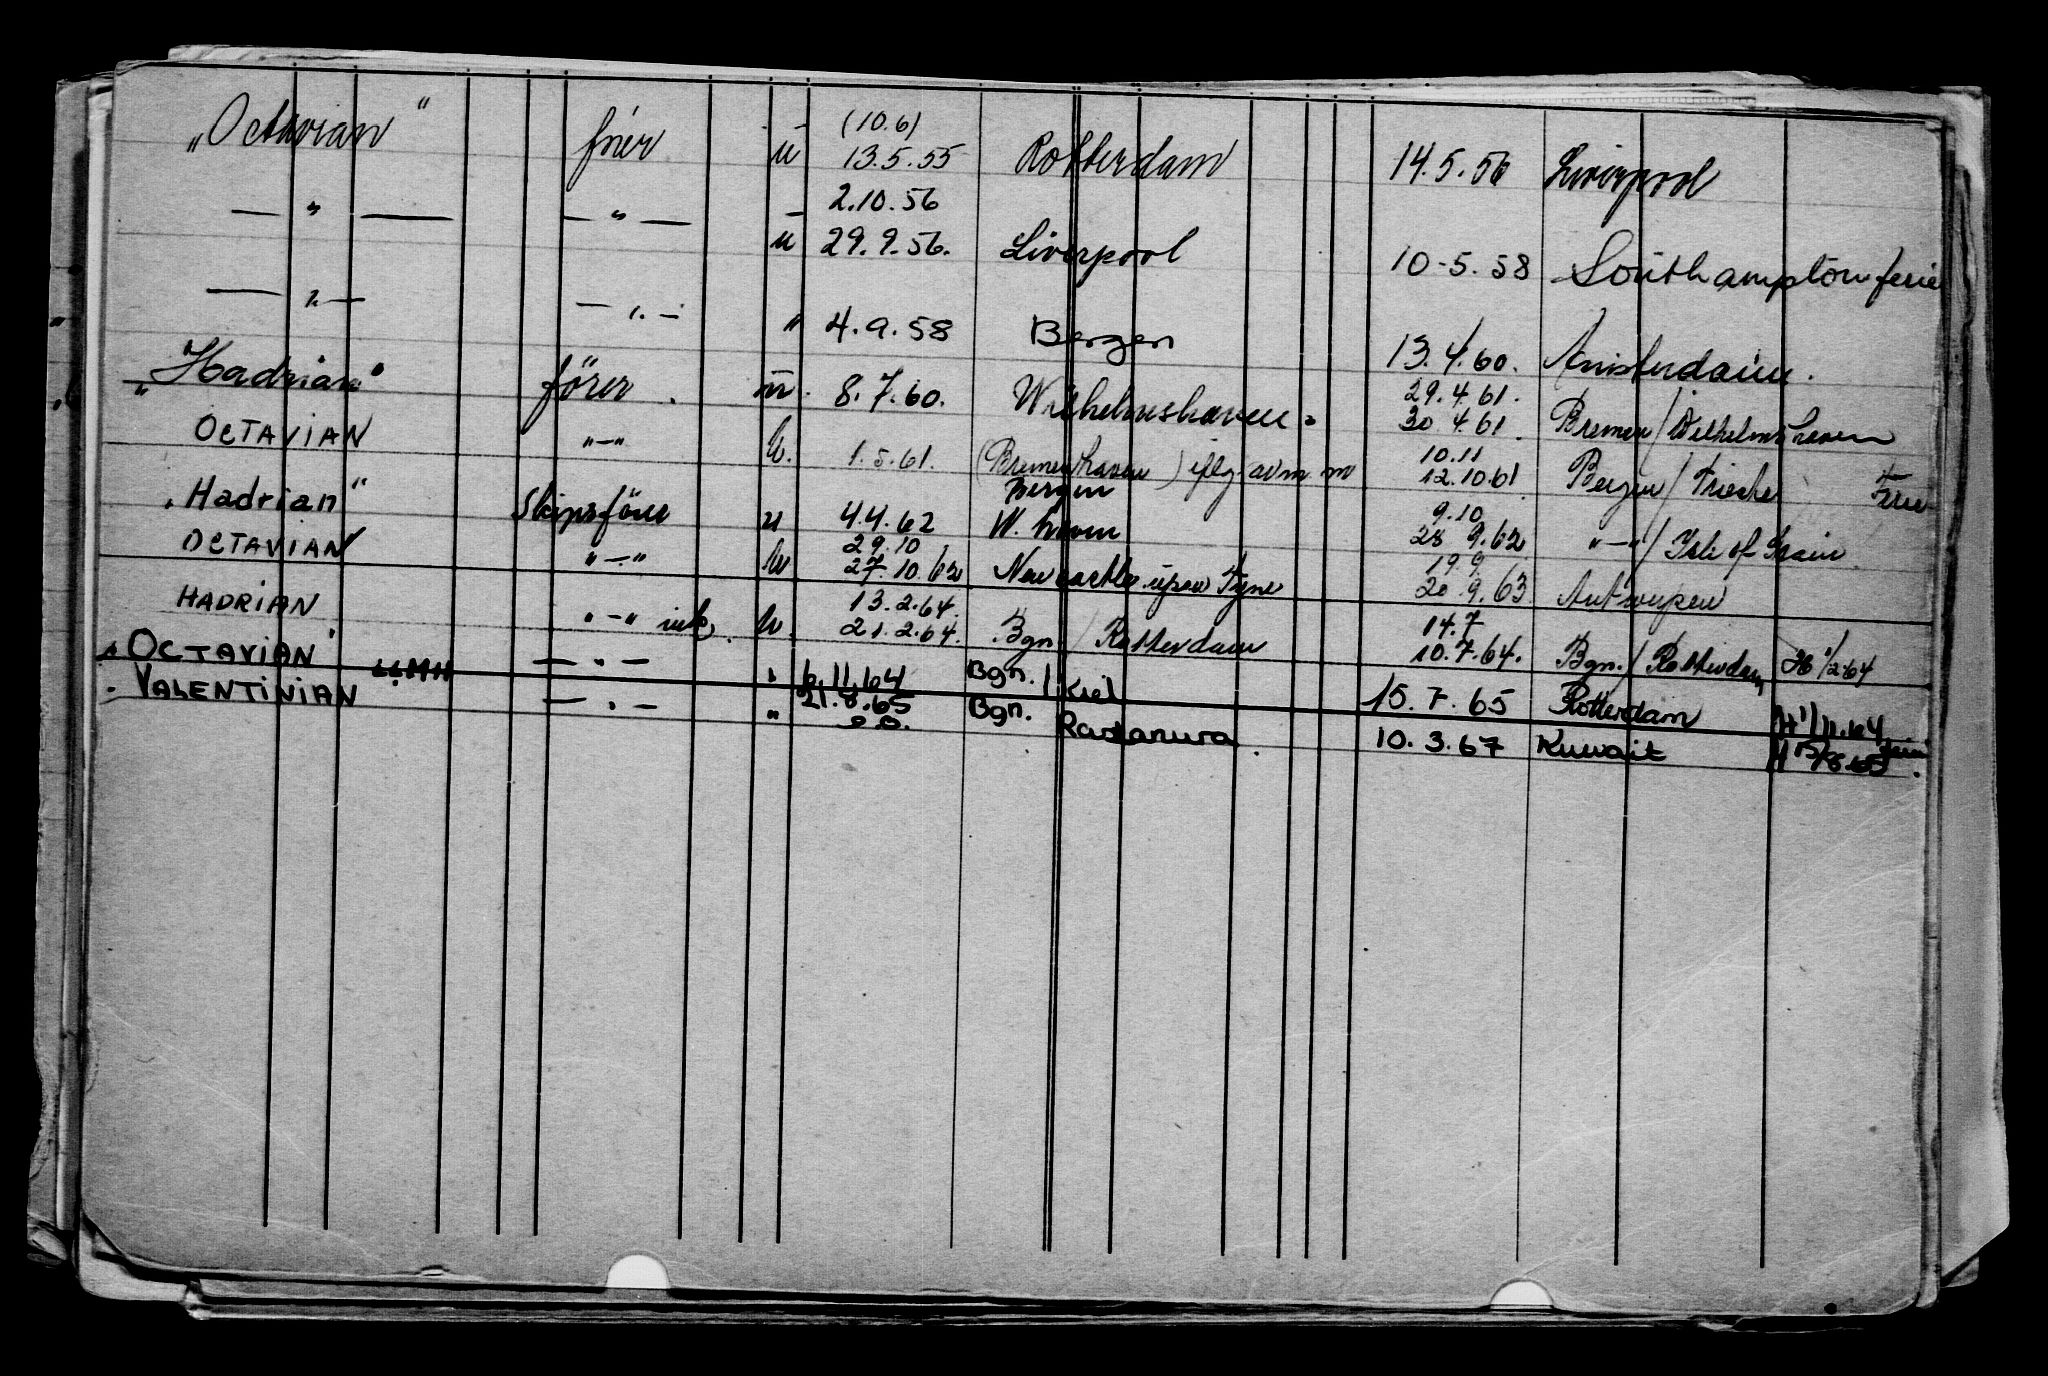 „Octavian" fører (10.6)
u 13.5.55 Rotterdam 14.5.56 Liverpool
— " — — " — 2.10.56
u 29.9.56. Liverpool 10-5.58 Southampton ferie
— " — — " — " 4.9.58 Bergen 13.4.60. Amsterdam.
„Hadrian" förer . m. 8.7.60. Wilhelmshaven. 29.4.61.
30.4.61. Bremen/Wilhelmshaven
OCTAVIAN "—" u. 1.5.61. (Bremerhaven) 10.11
Bergen 12.10.61 Bergen/Trieste Ferie
„Hadrian" Skipsförer u 4.4.62 W. haven 9.10
28 9.62 "—"/Isle of Grain
OCTAVIAN "—" u 29.10
27.10.62 Newcastle upon Tyne 19.9
20.9.63. Antwerpen
HADRIAN "—" u. 13.2.64.
21.2.64. Bgn / Rotterdam 14.7
10.7.64. Bgn./Rotterdam H 1/2-64
„OCTAVIAN" — " — " 6.11.64 Bgn. / Kiel 15.7.65 Rotterdam H 1/11.64
„VALENTINIAN — " — " 21.8.65 Bgn. 10.3.67 Kuwait H 15/8.65